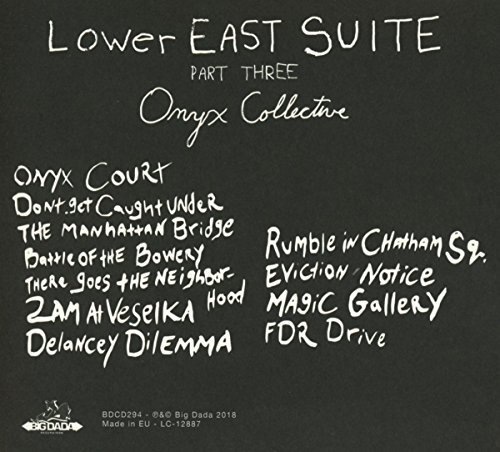 Lower EAST SUITE
PART THREE
Onyx Collective
ONYX COURT
Dont get Caught UNDER
THE MANHATTAN Bridge
BATTLE OF THE BOWERY
THERE GOES THE NEIGHBOR-
HOOD
2AM At VESELKA
Delancey DILEMMA
RUMBLE in CHATHAM Sq.
EVICTION Notice
MAGIC GALLERY
FDR Drive
BIG DADA
BDCD294 - ℗&© Big Dada 2018
Made in EU - LC-12887